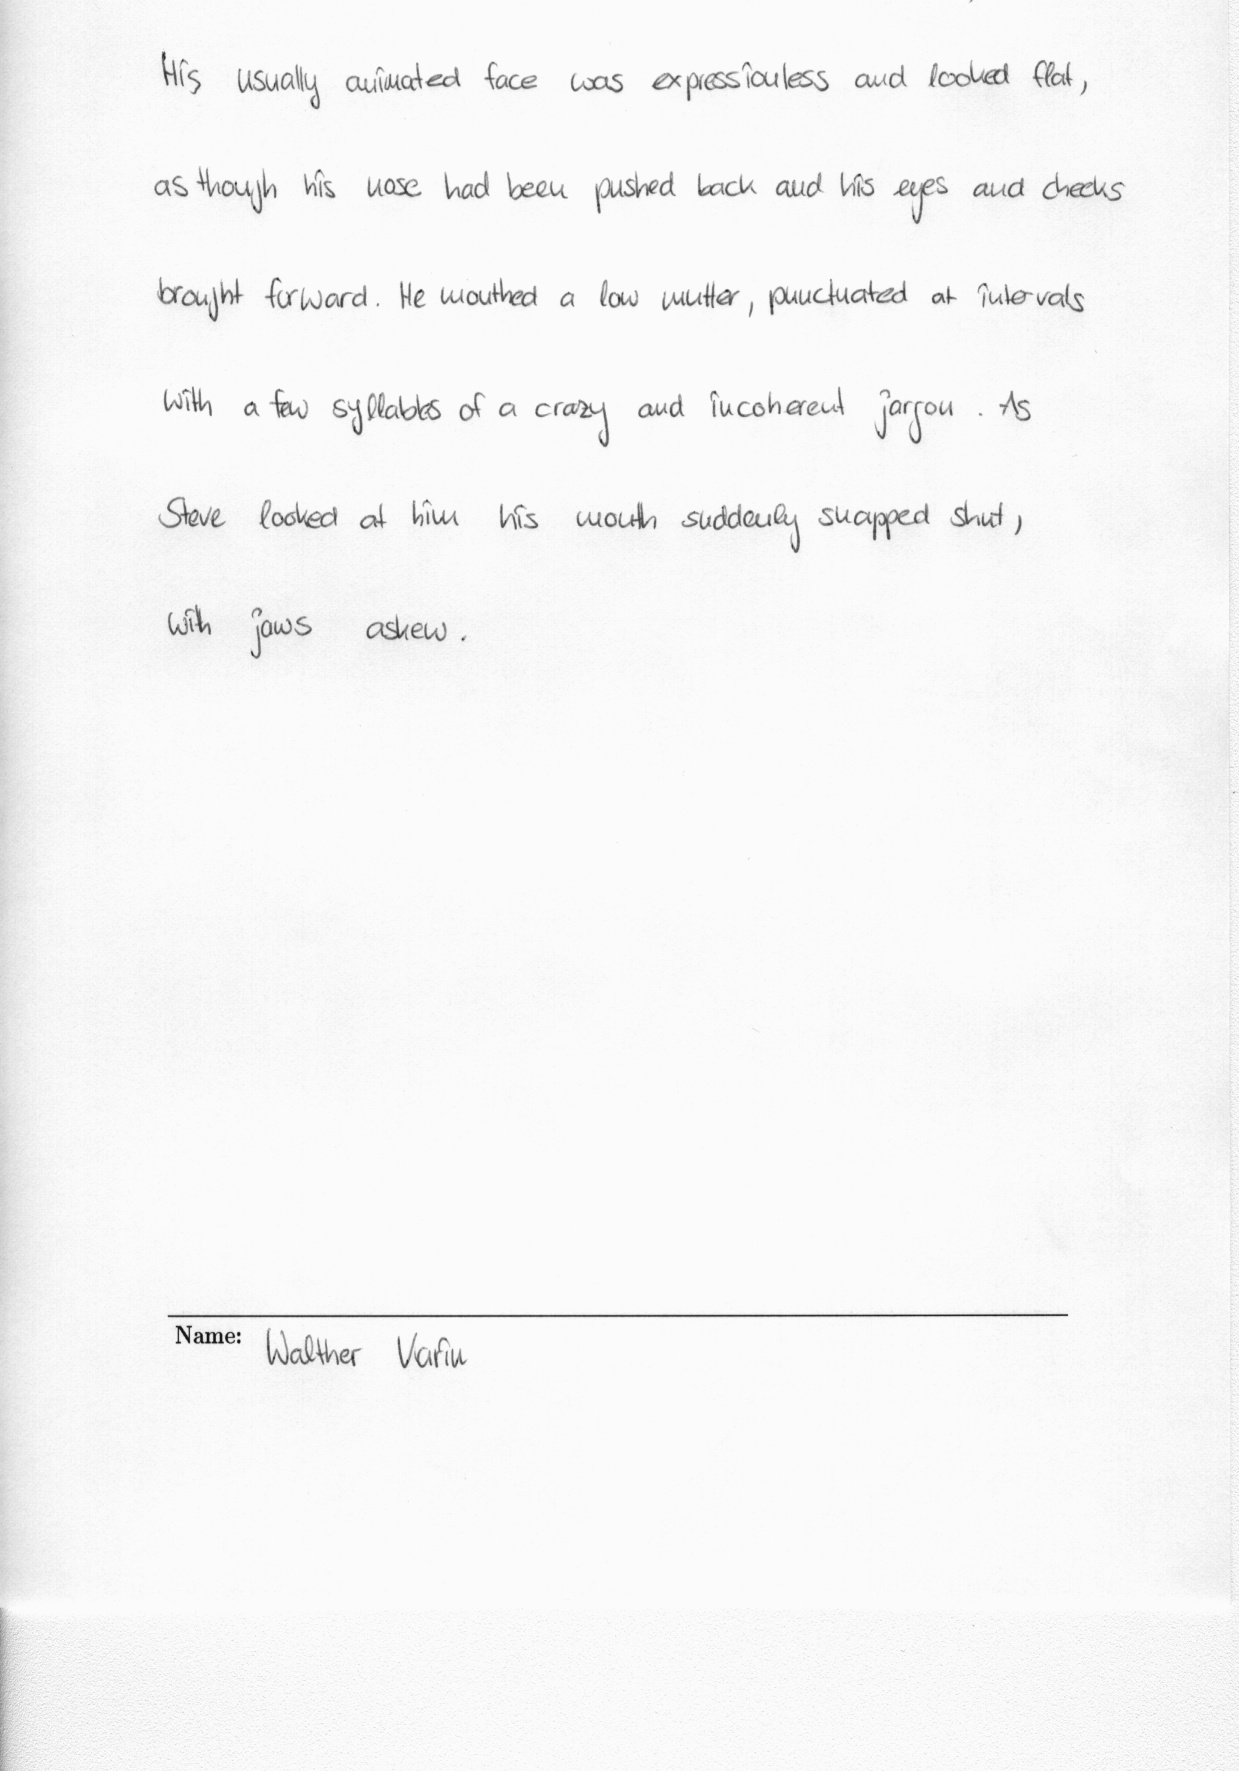 His usually animated face was expressionless and looked flat,
as though his nose had been pushed back and his eyes and cheeks
brought forward. He mouthed a low mutter, punctuated at intervals
with a few syllables of a crazy and incoherent jargon. As
Steve looked at him his mouth suddenly snapped shut,
with jaws askew.
Name: Walther Varin